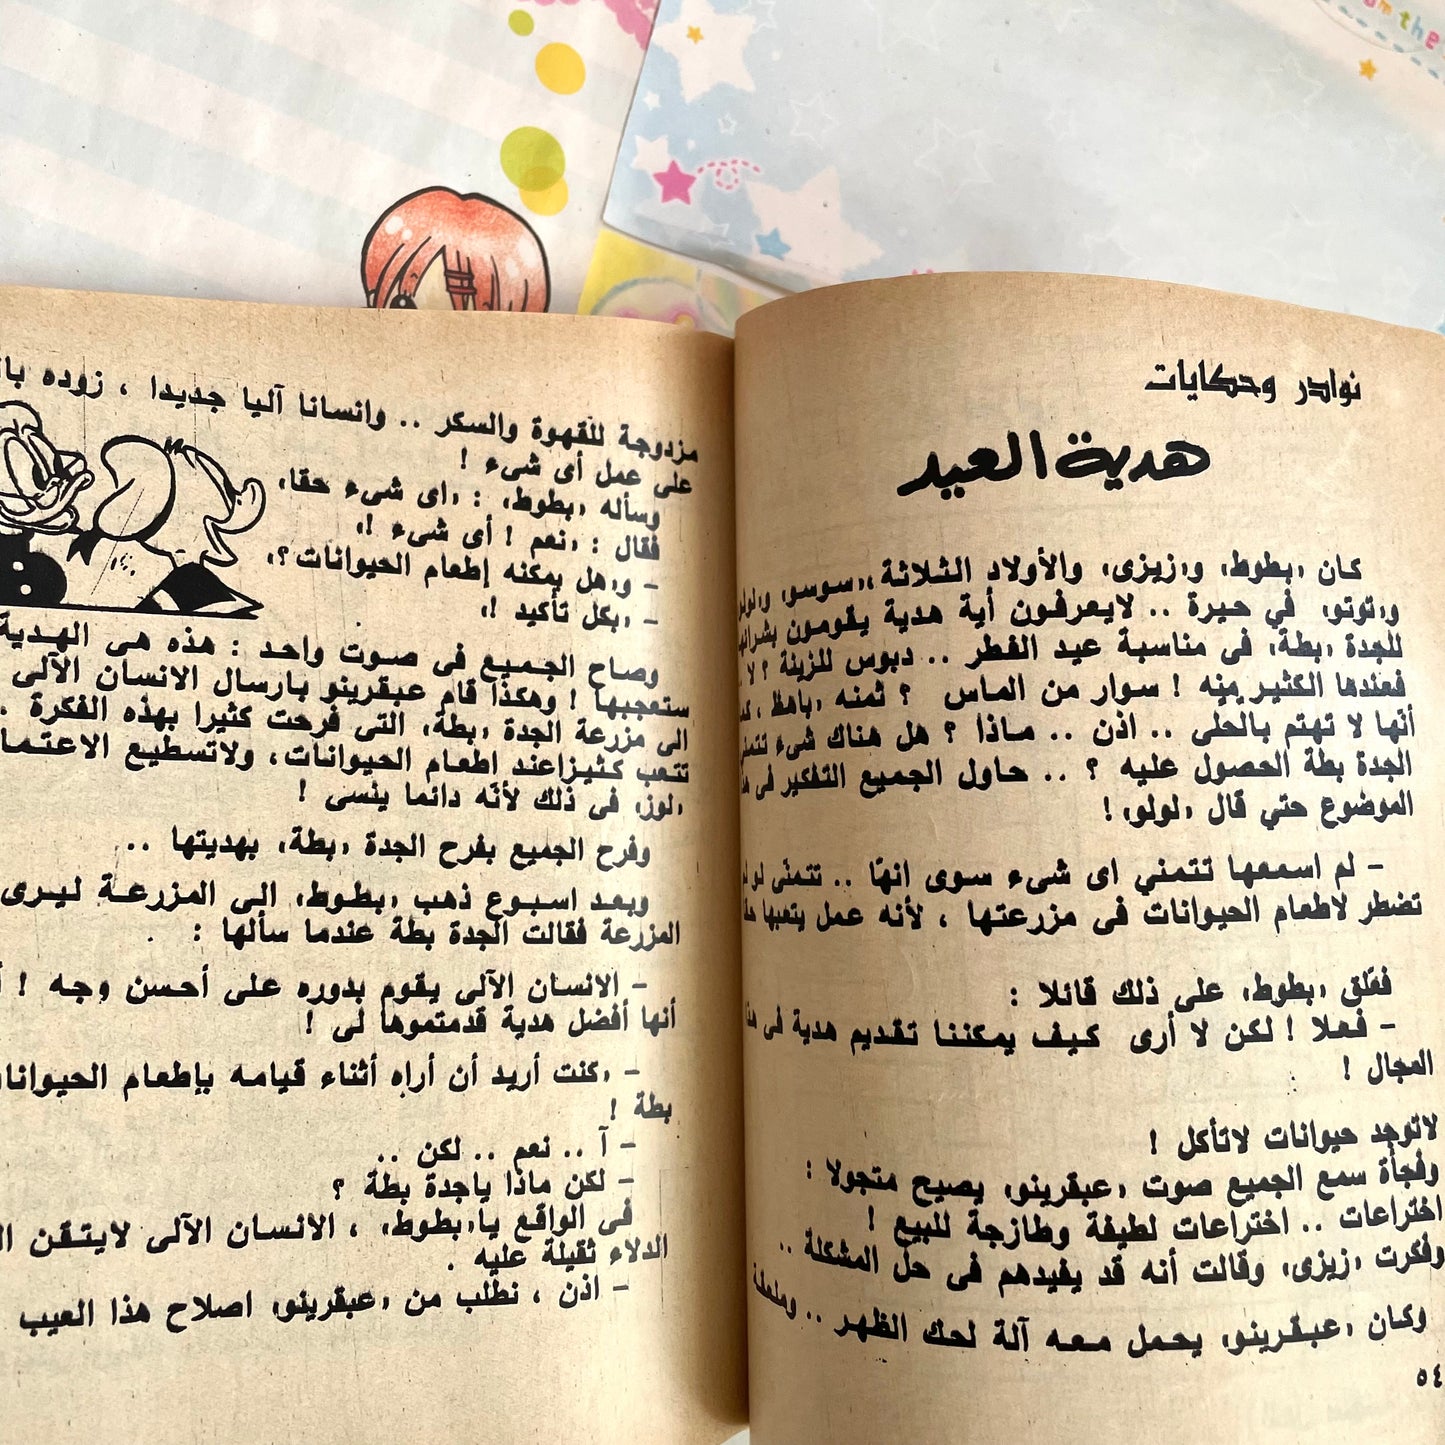 نوادر وحكايات
هدية العيد
كان «بطوط» و«زيزى» والأولاد الثلاثة «سوسو» و«لولو»
و«توتو» في حيرة .. لايعرفون أية هدية يقومون بشرائها
للجدة «بطة» فى مناسبة عيد الفطر .. دبوس للزينة ؟ لا ..
فعندها الكثير منه ! سوار من الماس ؟ ثمنه «باهظ» ، كما
أنّها لا تهتم بالحلى .. اذن .. ماذا ؟ هل هناك شىء تتمنى
الجدة بطة الحصول عليه ؟ .. حاول الجميع التفكير فى هذا
الموضوع حتي قال «لولو» !
- لم اسمعها تتمني اى شىء سوى انهّا .. تتمنّى لو لم
تضطر لاطعام الحيوانات فى مزرعتها ، لأنه عمل يتعبها حقا
فعّلق «بطوط» على ذلك قائلا :
- فعلا ! لكن لا أرى كيف يمكننا تقديم هدية فى هذا
المجال !
لاتوجد حيوانات لاتأكل !
وفجأة سمع الجميع صوت «عبقرينو» يصيح متجولا :
اختراعات .. اختراعات لطيفة وطازجة للبيع !
وفكرت «زيزى» وقالت أنه قد يفيدهم فى حل المشكلة ..
وكان «عبقرينو» يحمل معه آلة لحك الظهر .. وملعقة
٥٤
مزدوجة للقهوة والسكر .. وانسانا آليا جديدا ، زوده
على عمل أى شىء !
وسأله «بطوط» : «اى شىء حقا»
فقال : «نعم ! أى شىء !»
- و«هل يمكنه إطعام الحيوانات ؟»
- «بكل تأكيد !»
وصاح الجميع فى صوت واحد : هذه هى الهدية
ستعجبها ! وهكذا قام عبقرينو بارسال الانسان الآلى
الى مزرعة الجدة «بطة» التى فرحت كثيرا بهذه الفكرة .
تتعب كثيرا عند اطعام الحيوانات، ولاتسطيع
«لوز» فى ذلك لأنّه دائما ينسى !
وفرح الجميع بفرح الجدة «بطة» بهديتها ..
وبعد اسبوع ذهب «بطوط» الى المزرعة ليرى
المزرعة فقالت الجدة بطة عندما سألها :
- الانسان الآلى يقوم بدوره على أحسن وجه !
أنها أفضل هدية قدمتموها لى !
- «كنت أريد أن أراه أثناء قيامه بإطعام
بطة !
- آ .. نعم .. لكن ..
- لكن ماذا ياجدة بطة ؟
فى الواقع يا«بطوط» ، الانسان الآلى لايتقن
الدلاء ثقيلة عليه .
- اذن ، نطلب من «عبقرينو» اصلاح هذا العيب